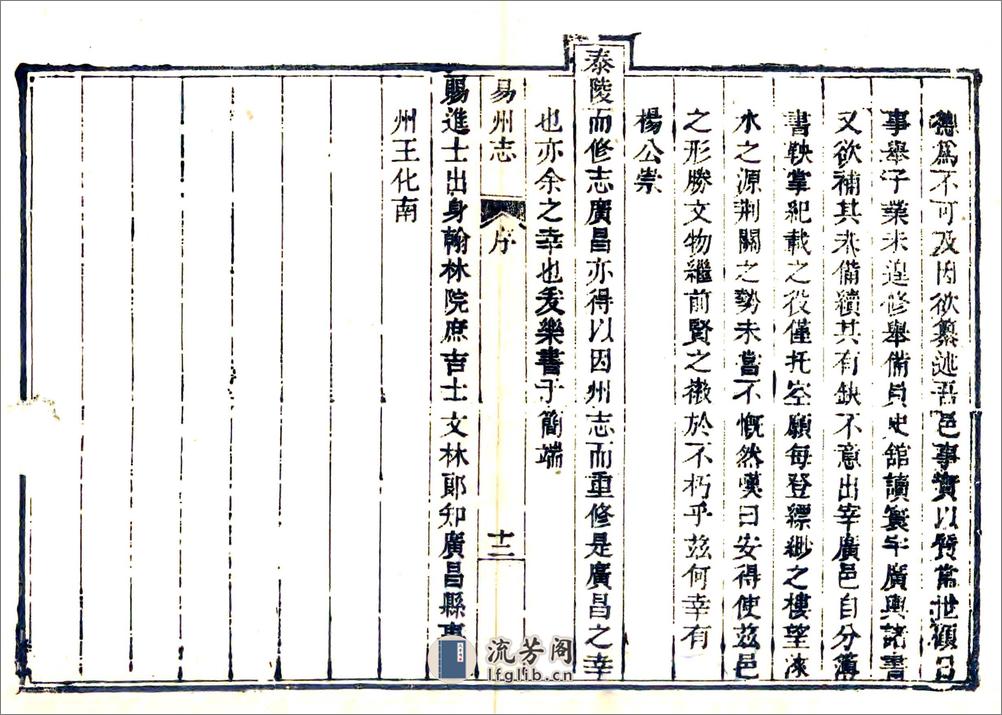 德為不可及因欲纂述吾邑事實以質當世顧日
事舉子業未遑修舉備員史館讀寰宇廣輿諸書
又欲補其未備續其有缺不意出宰廣邑自分簿
書鞅掌紀載之役僅托空願每登縹緲之樓望淶
水之源荊關之勢未嘗不慨然嘆曰安得使茲邑
之形勝文物繼前賢之徽於不朽乎茲何幸有
楊公崇
泰陵而修志廣昌亦得以因州志而重修是廣昌之幸
也亦余之幸也爰樂書于簡端
易州志 序 十二
賜進士出身翰林院庶吉士文林郎知廣昌縣事
州王化南
流芳阁
lfglib.cn